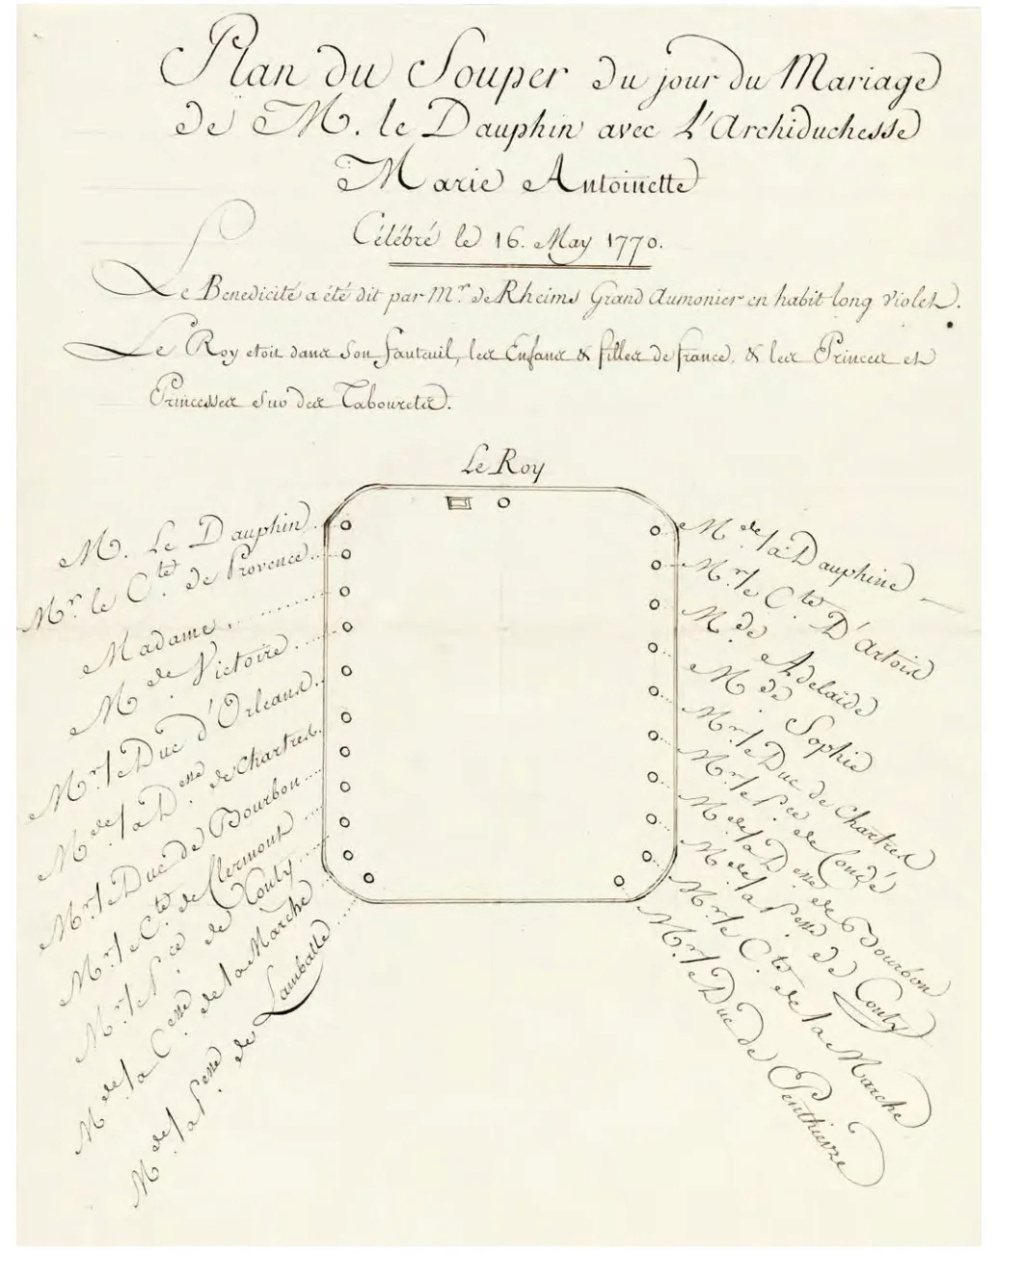 Plan du Souper du jour du Mariage
de M. le Dauphin avec L'Archiduchesse
Marie Antoinette
Célébré le 16. May 1770.
Le Benedicité a été dit par Mr. de Rheims Grand Aumonier en habit long violet.
Le Roy etoit dans son fauteuil, les Enfans & filles de france, & les Princes et
Princesses sur des Tabourets.
Le Roy
M. Le Dauphin
Mr. le Cte. de Provence
Madame
Mde. Victoire
Mr. le Duc d'Orleans
Mde. la Desse. de Chartres
Mr. le Duc de Bourbon
Mr. le Cte. de Clermont
Mr. le Pce. de Conty
Mde. la Cesse. de la Marche
Mde. la Pesse. de Lamballe
Mde. la Dauphine
Mr. le Cte. D'Artois
Mde. Adelaïde
Mde. Sophie
Mr. le Duc de Chartres
Mr. le Pce. de Condé
Mde. la Desse. de Bourbon
Mde. la Pesse. de Conty
Mr. le Cte. de la Marche
Mr. le Duc de Penthievre